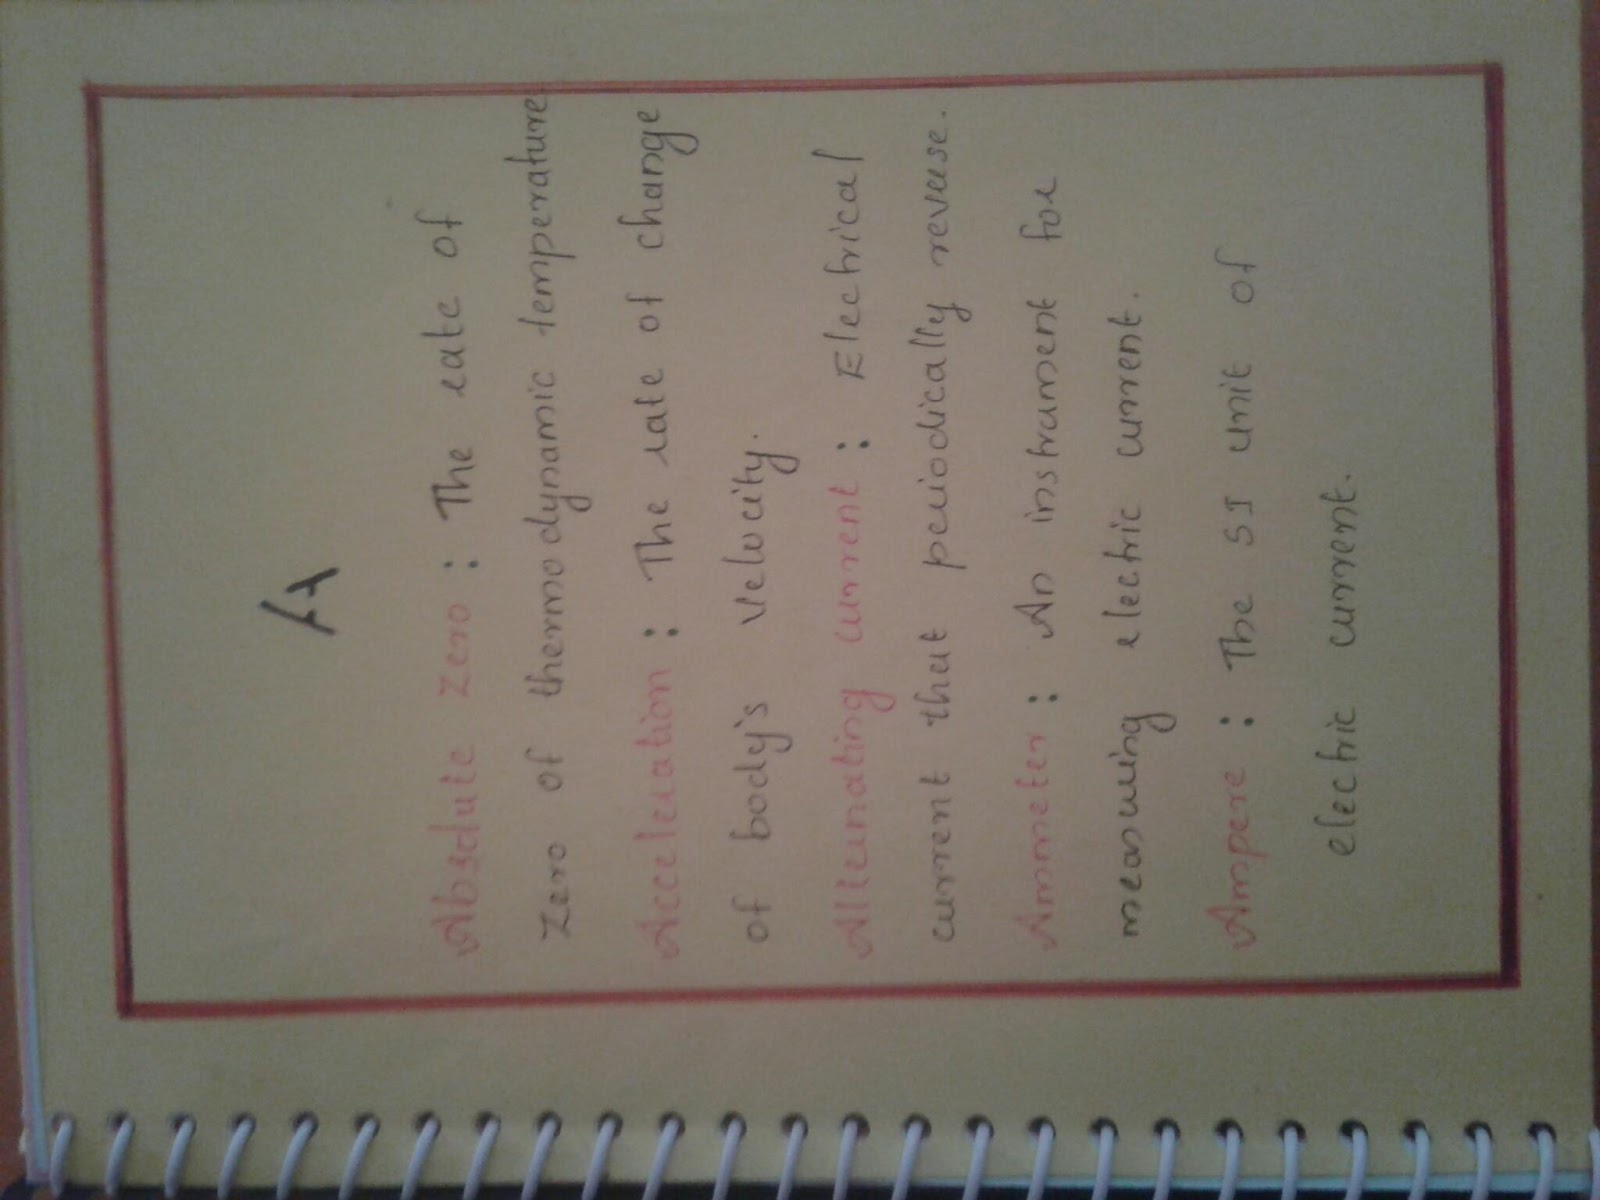 A
Absolute Zero : The rate of
Zero of thermodynamic temperature
Acceleration : The rate of change
of body's velocity.
Alternating current : Electrical
current that periodically reverse.
Ammeter : An instrument for
measuring electric current.
Ampere : The SI unit of
electric current.